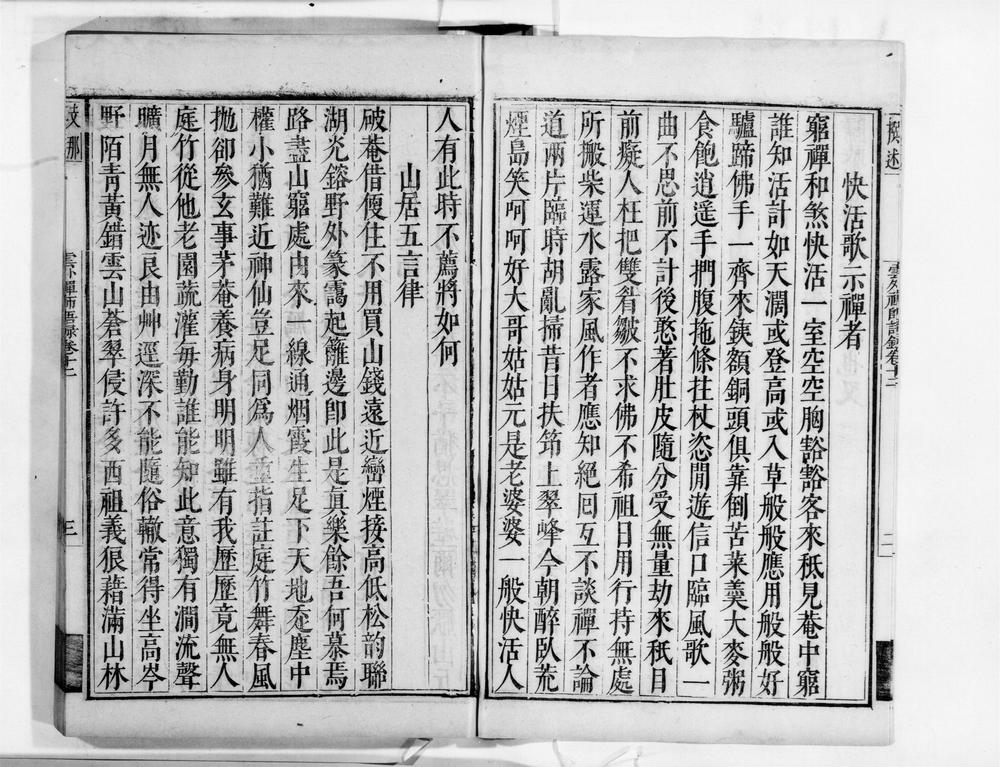 快活歌示禪者
窮禪和煞快活一室空空空胸豁豁客來秪見菴中窮
誰知活計如天濶或登高或入草般般應用般般好
驢蹄佛手一齊來鐵額銅頭俱靠倒苦菜羹大麥粥
食飽逍遥手捫腹拖條拄杖恣閒遊信口臨風歌一
曲不思前不計後憨著肚皮隨分受無量劫來秪目
前癡人枉把雙眉皺不求佛不希祖日用行持無處
所搬柴運水露家風作者應知絕囘互不談禪不論
道兩片臨時胡亂掃昔日扶筇上翠峰今朝醉臥荒
煙島笑呵呵好大哥姑姑元是老婆婆一般快活人
二
人有此時不薦將如何
山居五言律
破菴借傻住不用買山錢遠近巒煙接高低松韵聯
湖光鎔野外篆靄起籬邊卽此是眞樂餘吾何慕焉
路盡山窮處由來一線通烟霞生足下天地沍塵中
權小猶難近神仙豈足同爲人重指註庭竹舞春風
抛卻參玄事茅菴養病身明明雖有我歷歷竟無人
庭竹從他老園蔬灌每勤誰能知此意獨有澗流聲
曠月無人迹良由艸逕深不能隨俗轍常得坐高岑
野陌靑黃錯雲山蒼翠侵許多西祖義狠藉滿山林
支那
雲外禪師語錄卷十二
三